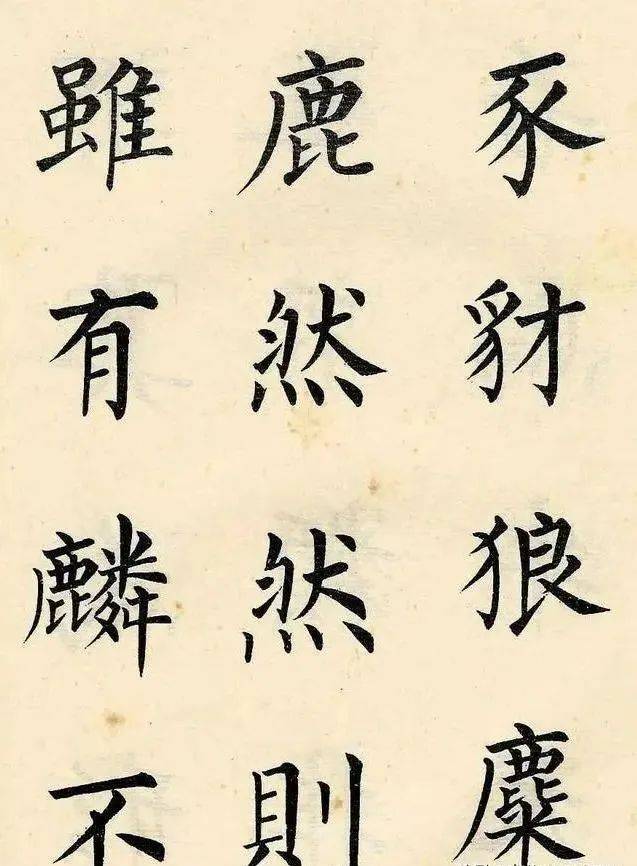 豕豺狼麋
鹿然然則
雖有麟不